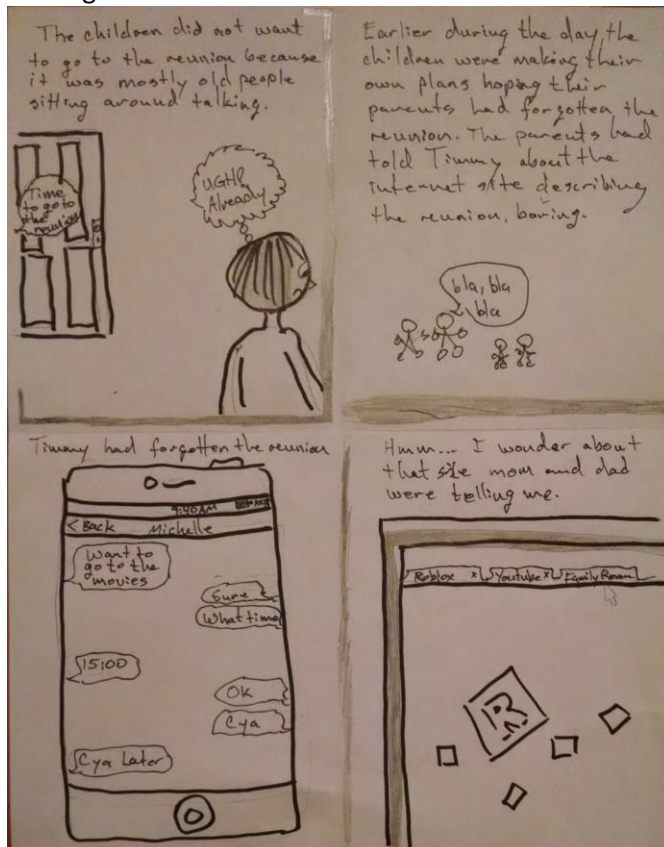 The children did not want
to go to the reunion because
it was mostly old people
sitting around talking.
Time
to go to
the
reunion
UGH!
Already
Earlier during the day, the
children were making their
own plans hoping their
parents had forgotten the
reunion. The parents had
told Timmy about the
internet site describing
the reunion, boring.
bla, bla
bla
Timmy had forgotten the reunion
9:40AM
< Back Michelle
Want to
go to the
movies
Sure
What time
15:00
OK
Cya
Cya Later
Hmm... I wonder about
that site mom and dad
were telling me.
Roblox x Youtube x Family Reun
R